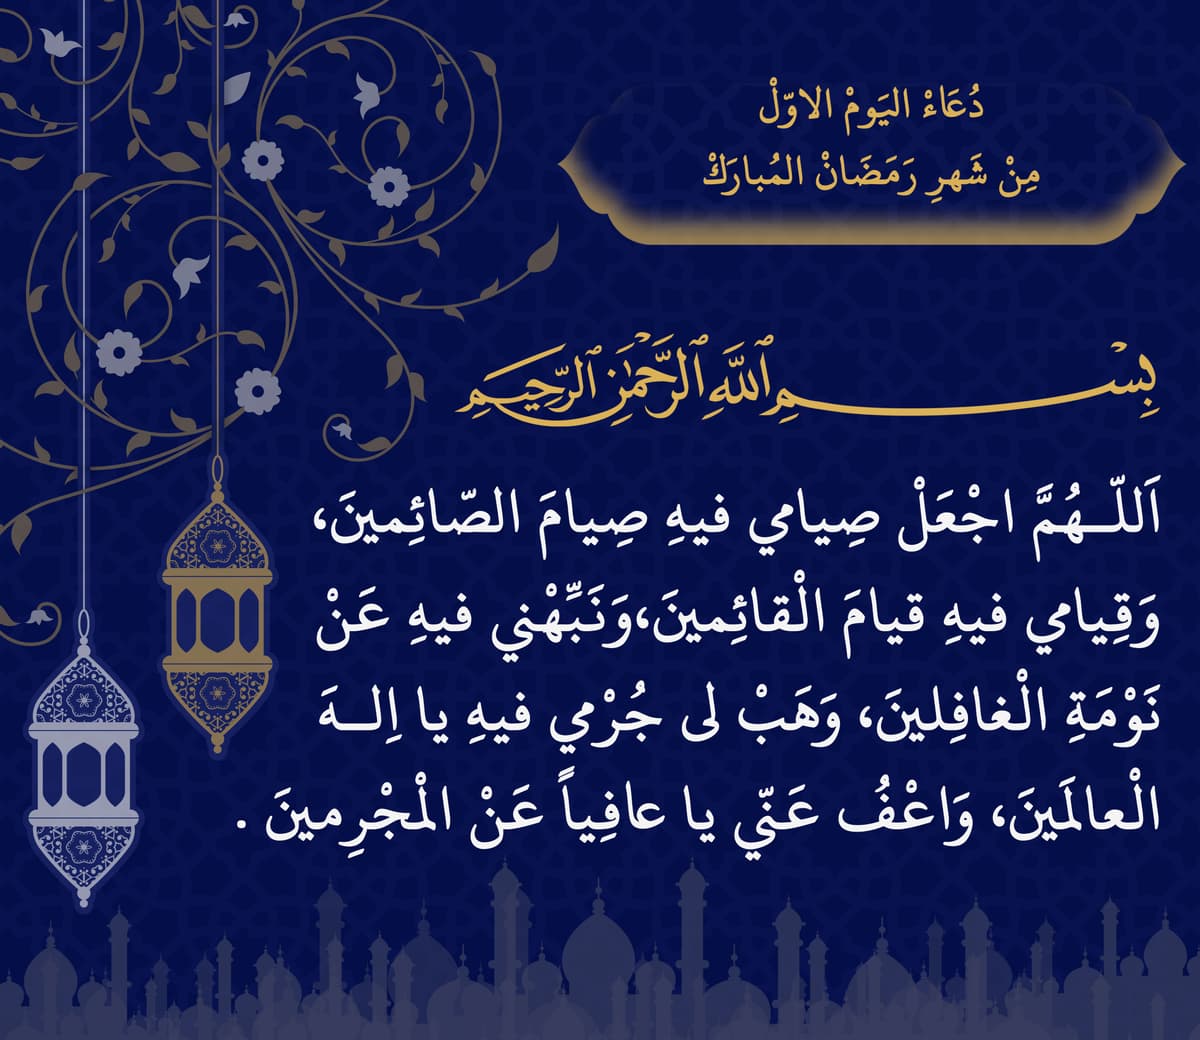 دُعَاءْ اليَومْ الاوّلْ
مِنْ شَهرِ رَمَضَانْ المُبارَكْ
بِسْمِ ٱللَّهِ ٱلرَّحْمَٰنِ ٱلرَّحِيمِ
اَللّـهُمَّ اجْعَلْ صِيامي فيهِ صِيامَ الصّائِمينَ،
وَقِيامي فيهِ قيامَ الْقائِمينَ،وَنَبِّهْني فيهِ عَنْ
نَوْمَةِ الْغافِلينَ، وَهَبْ لى جُرْمي فيهِ يا اِلـهَ
الْعالَمينَ، وَاعْفُ عَنّي يا عافِياً عَنْ الْمجْرِمينَ .